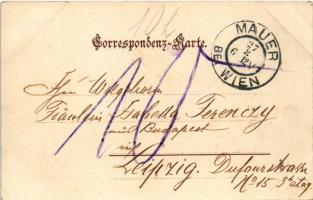 Correspondenz-Karte.
MAUER
BEI
WIEN
An Wolgeborn
Fräulein Isabella Ferenczy
aus Budapest
in
Leipzig. Dufourstrasse
No 15 3te Etag